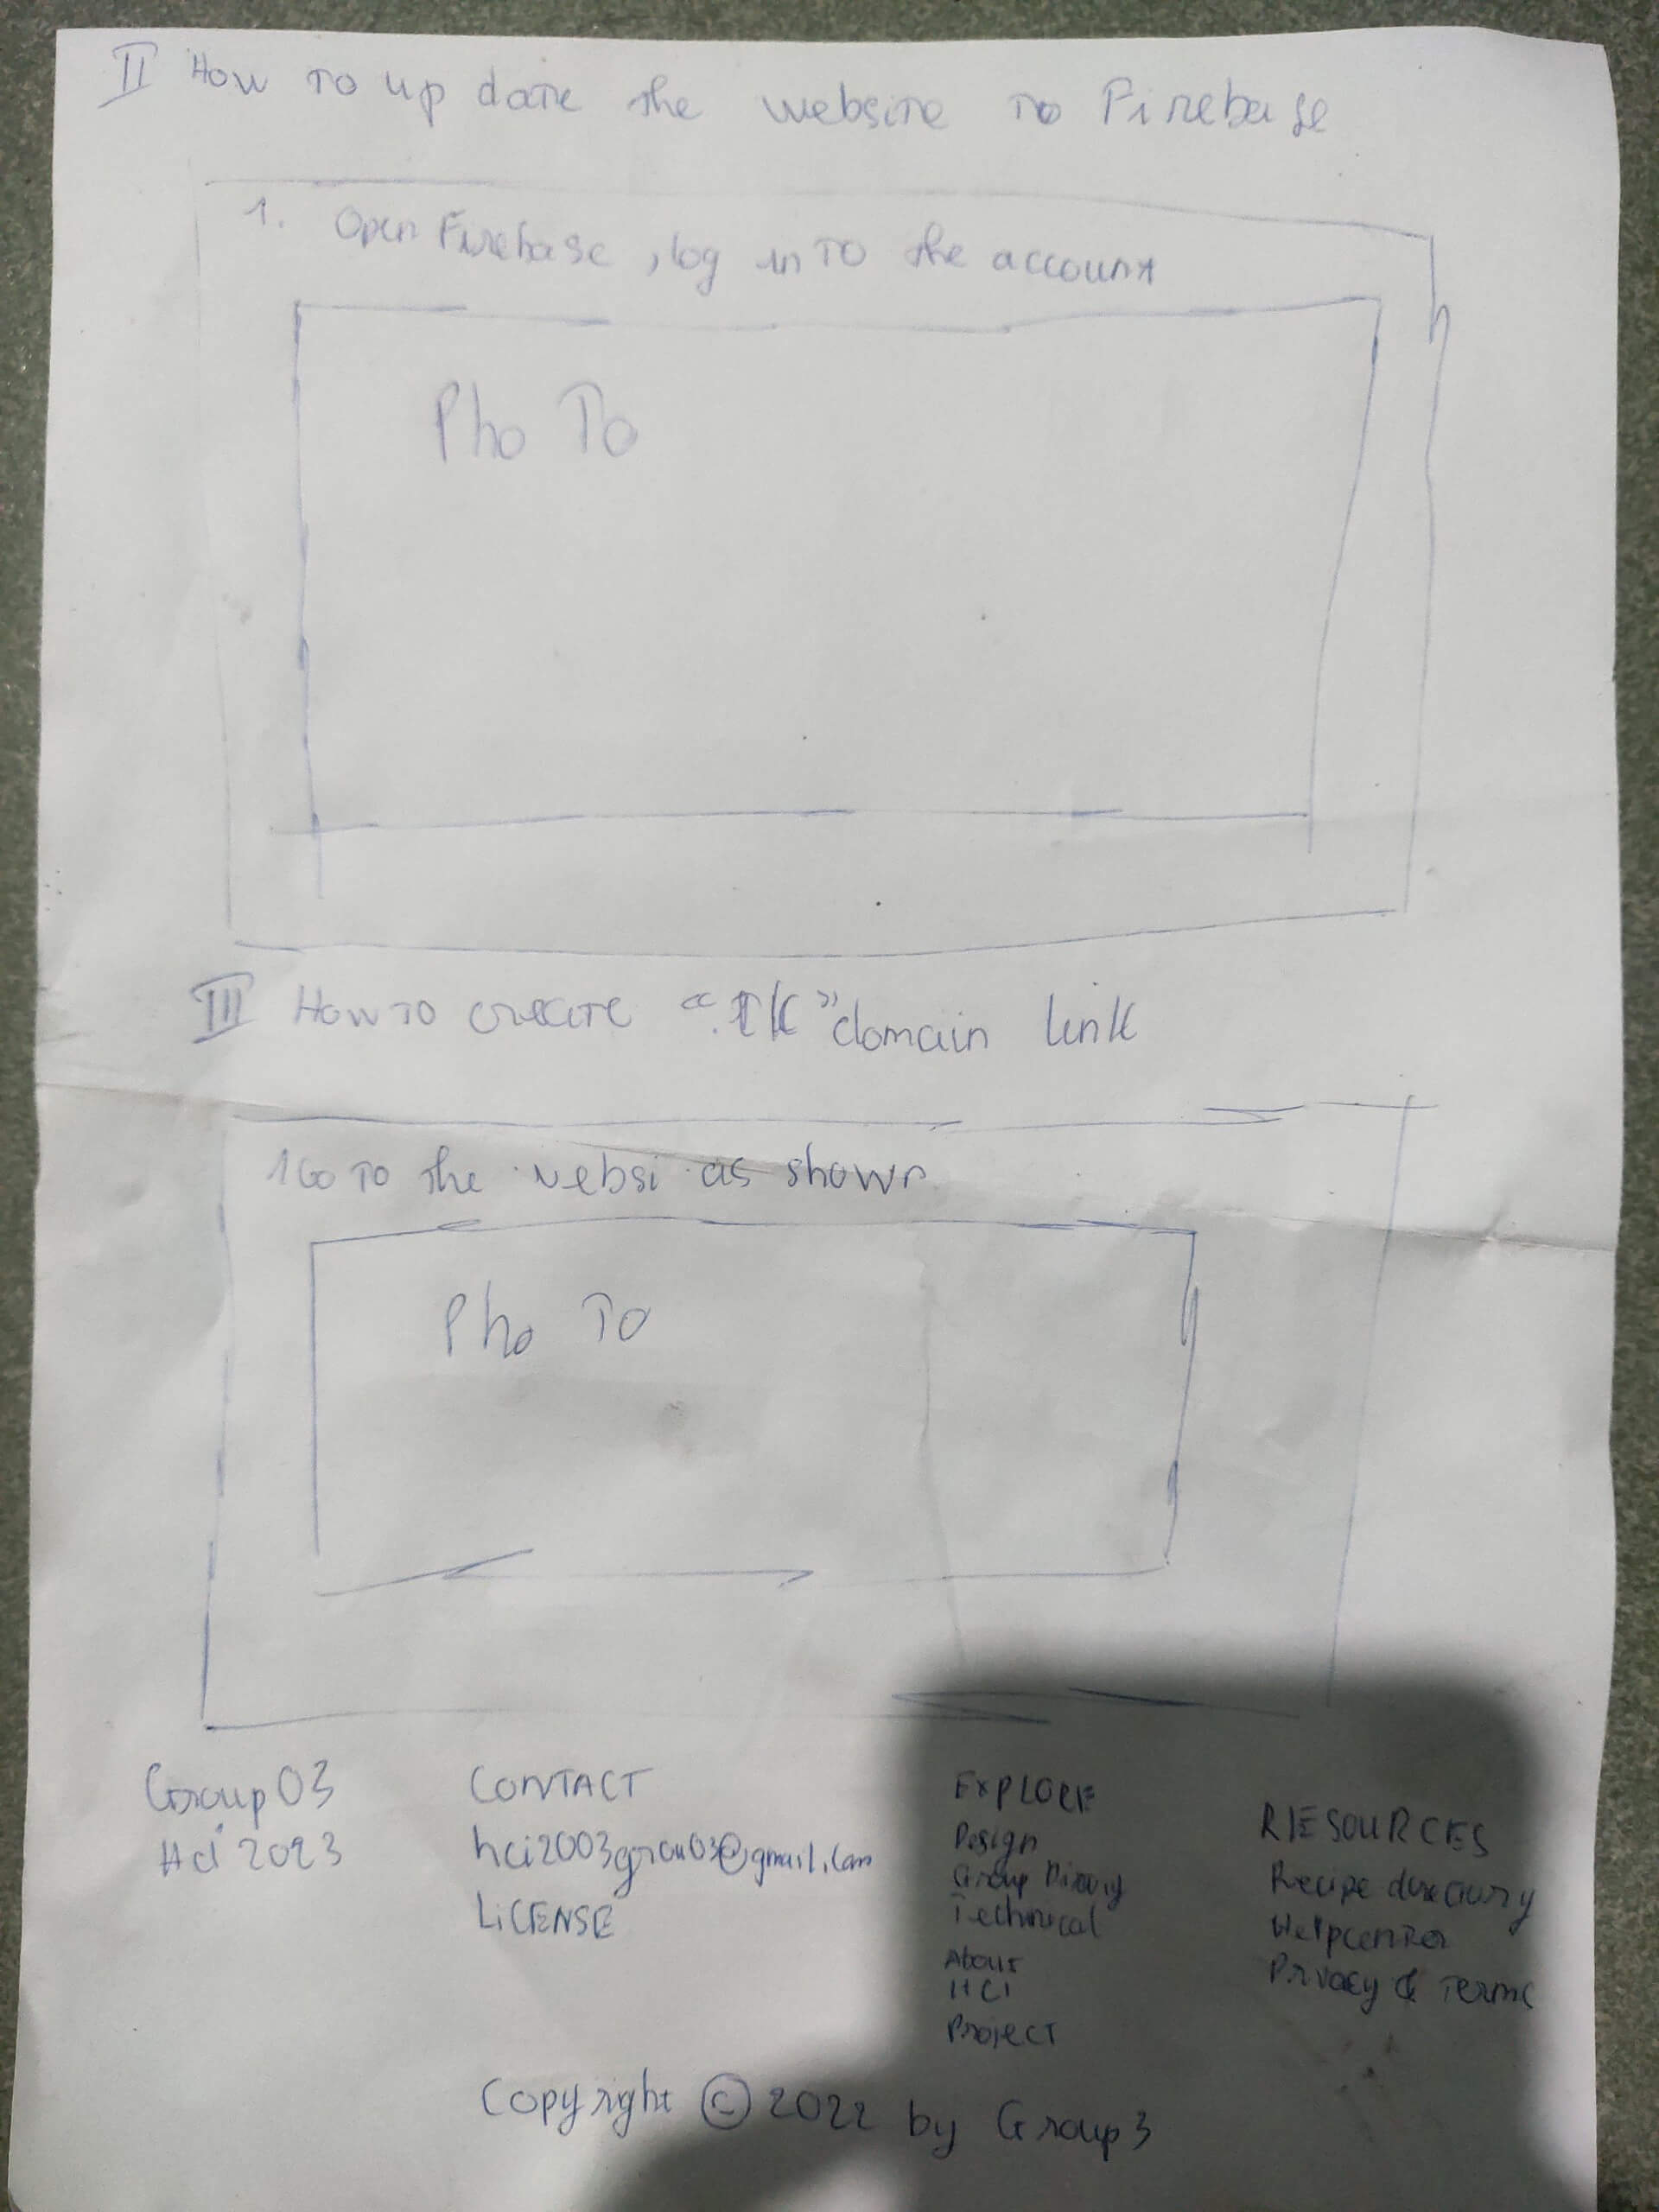 II How to up date the website to Firebase
1. Open Firebase, log in to the account
Photo
III How to create ".TK" domain link
1 Go to the websi as shown
Photo
Group 03
Hci 2023
CONTACT
hci2003grou03@gmail.com
LiCENSE
EXPLORE
Design
Group Diary
Technical
About
HCI
Project
RESOURCES
Recipe directory
Helpcenter
Privacy & Terms
Copyright © 2022 by Group 3